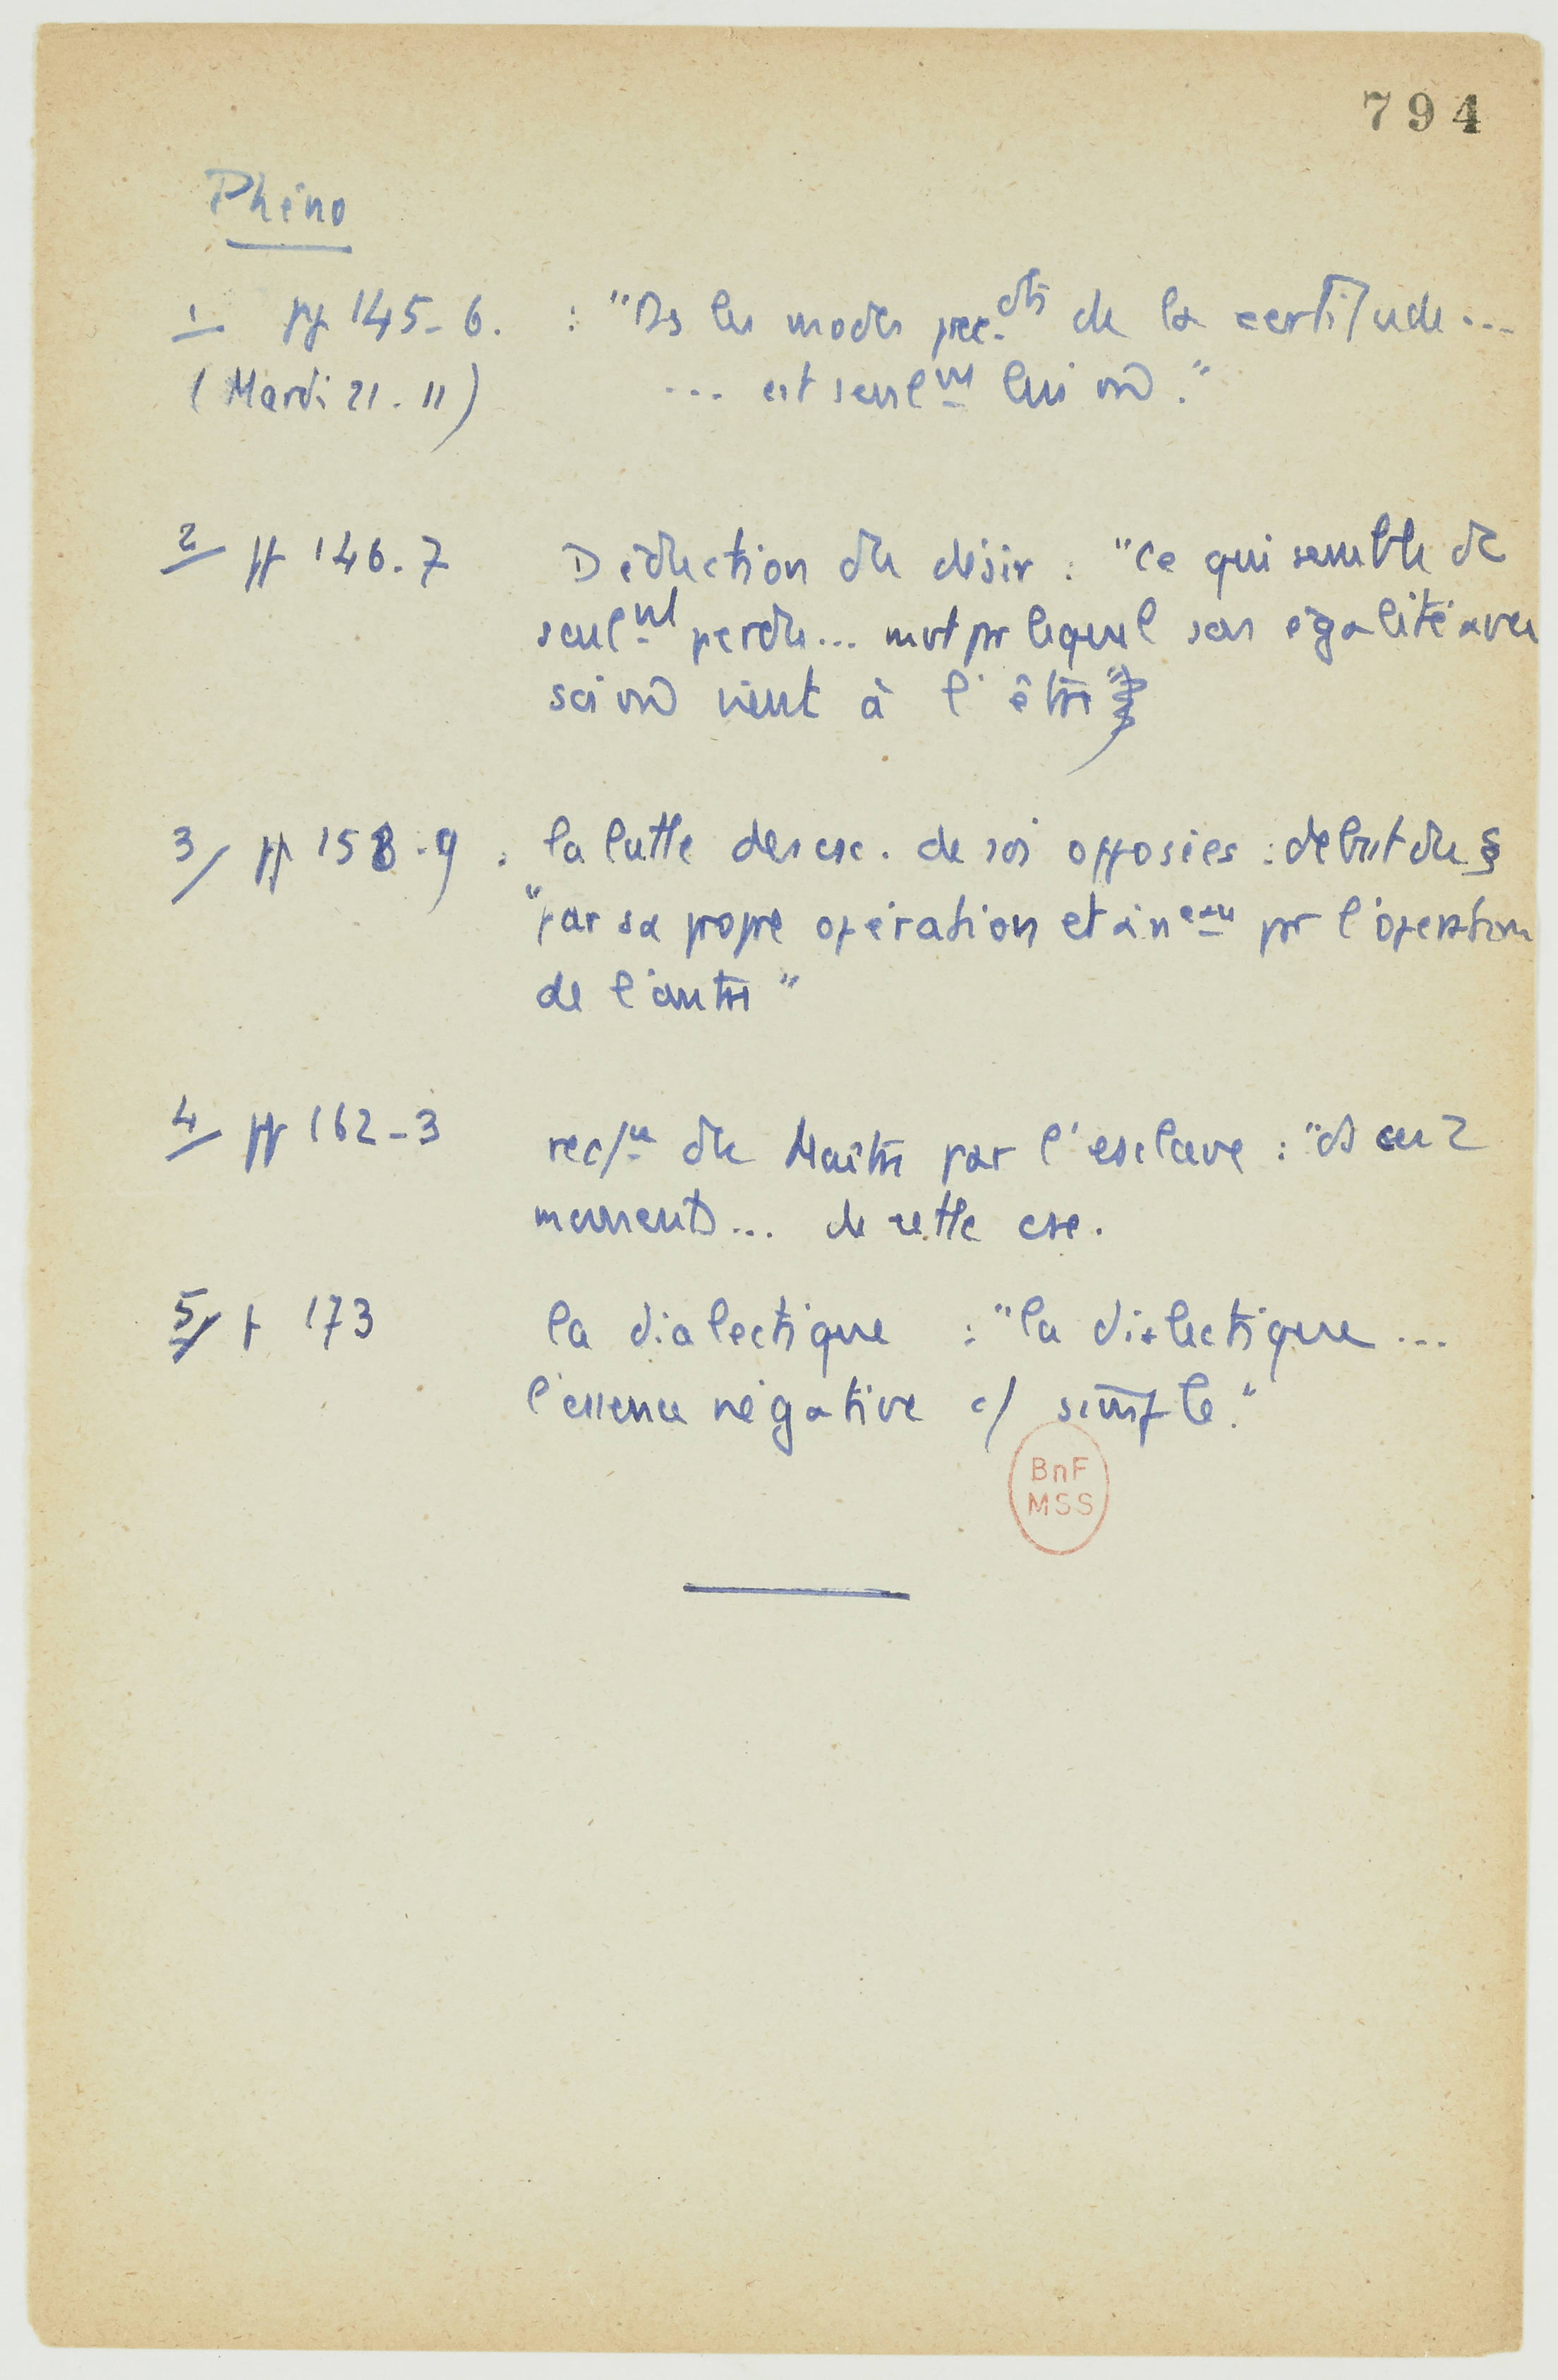 794
Phéno
1 pp 145-6. : "Ds les modes prec.dts de la certitude...
(Mardi 21.11) ... est seulmt lui m̂."
2/ pp 146.7 Déduction du désir : "Ce qui semble
seulmt perdu... mvt pr lequel son égalité avec
soi m̂ vient à l'être"
3/ pp 158-9 : la lutte des csc. de soi opposées : début du §
"par sa propre opération et pr l'opération
de l'autre"
4/ pp 162-3 du Maître par l'esclave : "ds ces 2
moments... de cette csc.
5/ p 173 la dialectique : "la dialectique...
l'essence négative c/ simple."
BnF
MSS